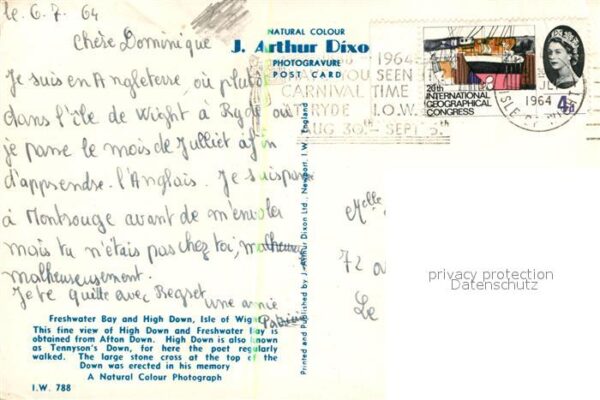 le 6.7.64
Chère Dominique
Je suis en Angleterre, où plutôt
dans l'île de Wight à Ryde où
je passe le mois de Julliet afin
d'apprendre l'Anglais. Je suis passé
à Montrouge avant de m'envoler
mais tu n'étais pas chez toi,
malheureusement.
Je te quitte avec Regret
une amie
NATURAL COLOUR
J. Arthur Dixo
PHOTOGRAVURE
POST CARD
1964
YOU SEEN
CARNIVAL TIME
RYDE I.O.W.
AUG 30TH - SEPT 5TH
20th
INTERNATIONAL
GEOGRAPHICAL
CONGRESS
4D
1964
ISLE OF WIGHT
Printed and Published by J. Arthur Dixon Ltd., Newport, I.W., England
Melle
72
Le
privacy protection
Datenschutz
Freshwater Bay and High Down, Isle of Wig
This fine view of High Down and Freshwater Bay is
obtained from Afton Down. High Down is also known
as Tennyson's Down, for here the poet regularly
walked. The large stone cross at the top of the
Down was erected in his memory
A Natural Colour Photograph
I.W. 788